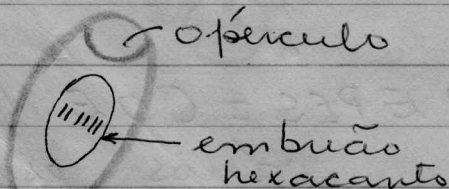 opérculo
embrião
hexacanto